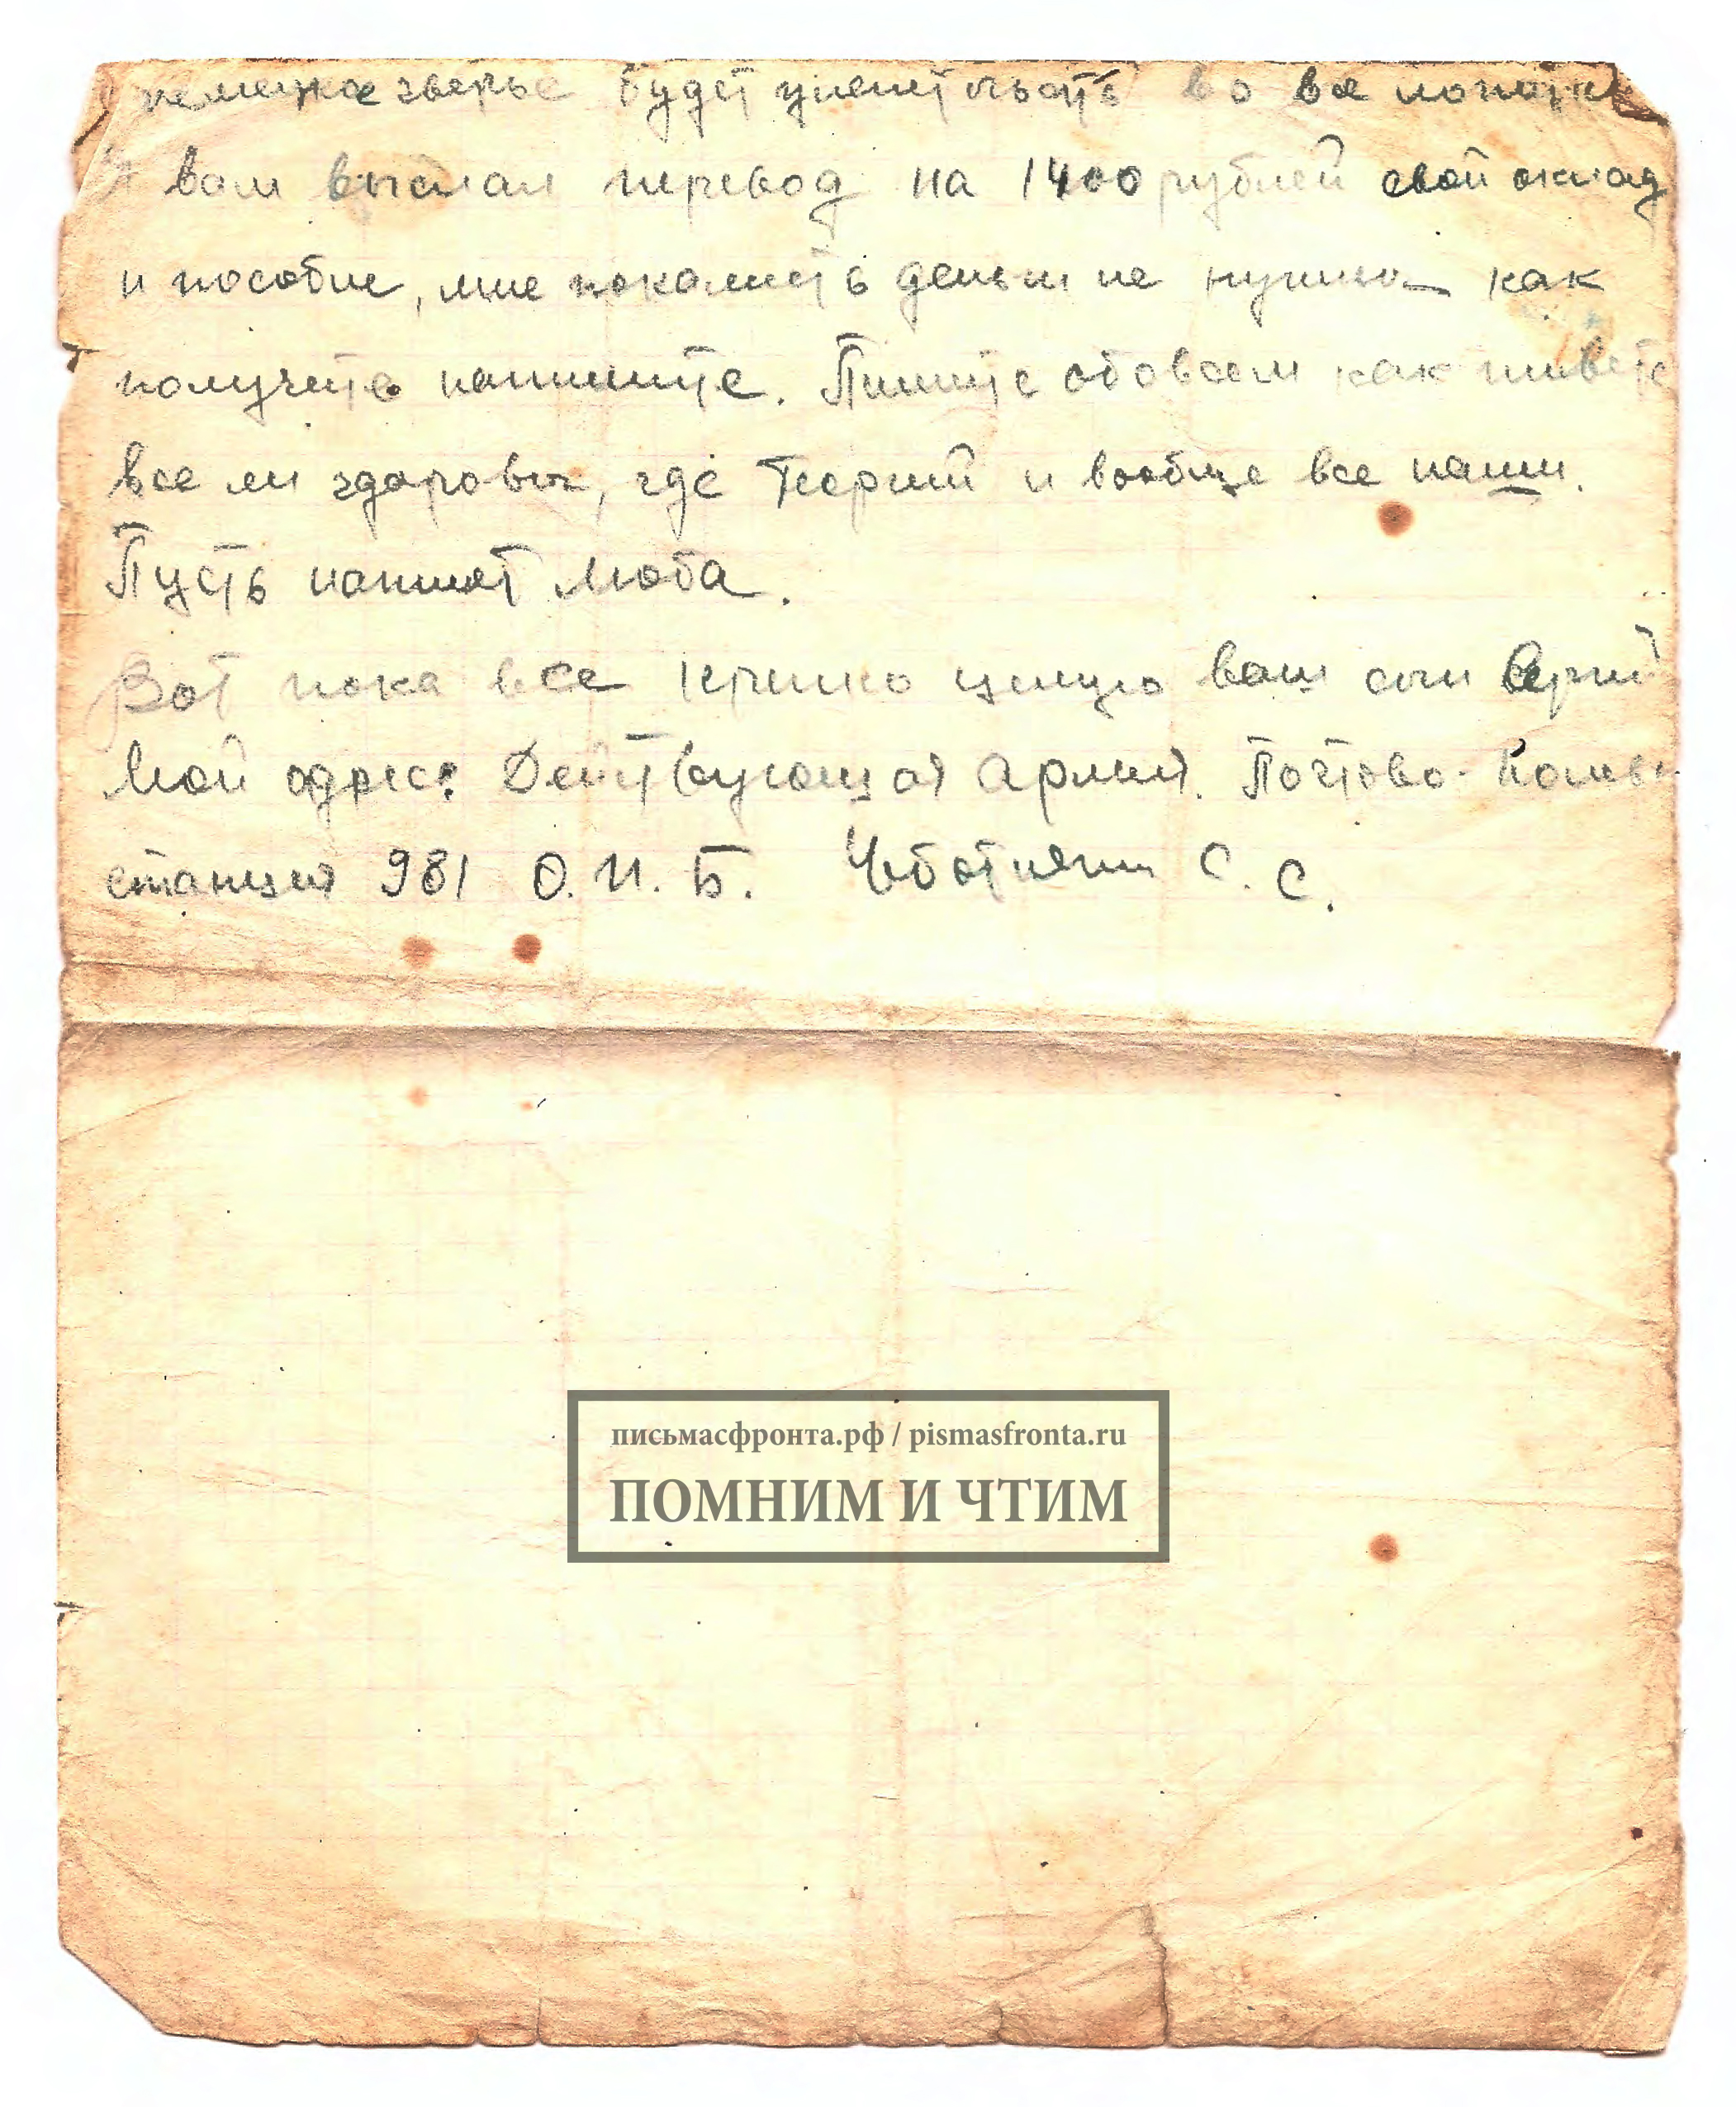 немецкое зверье будет улепетывать во все лопатки
Я вам выслал перевод на 1400 рублей свой оклад
и пособие, мне покаместь деньги не нужны как
получите напишите. Пишите обовсем как живете
все ли здоровы, где Георгий и вообще все наши.
Пусть напишет Люба.
Вот пока все крепко целую ваш сын Сергей
Мой адрес: Действующая Армия. Почтово-
станция 981 О.И.Б. С. С.
письмасфронта.рф / pismasfronta.ru
ПОМНИМ И ЧТИМ